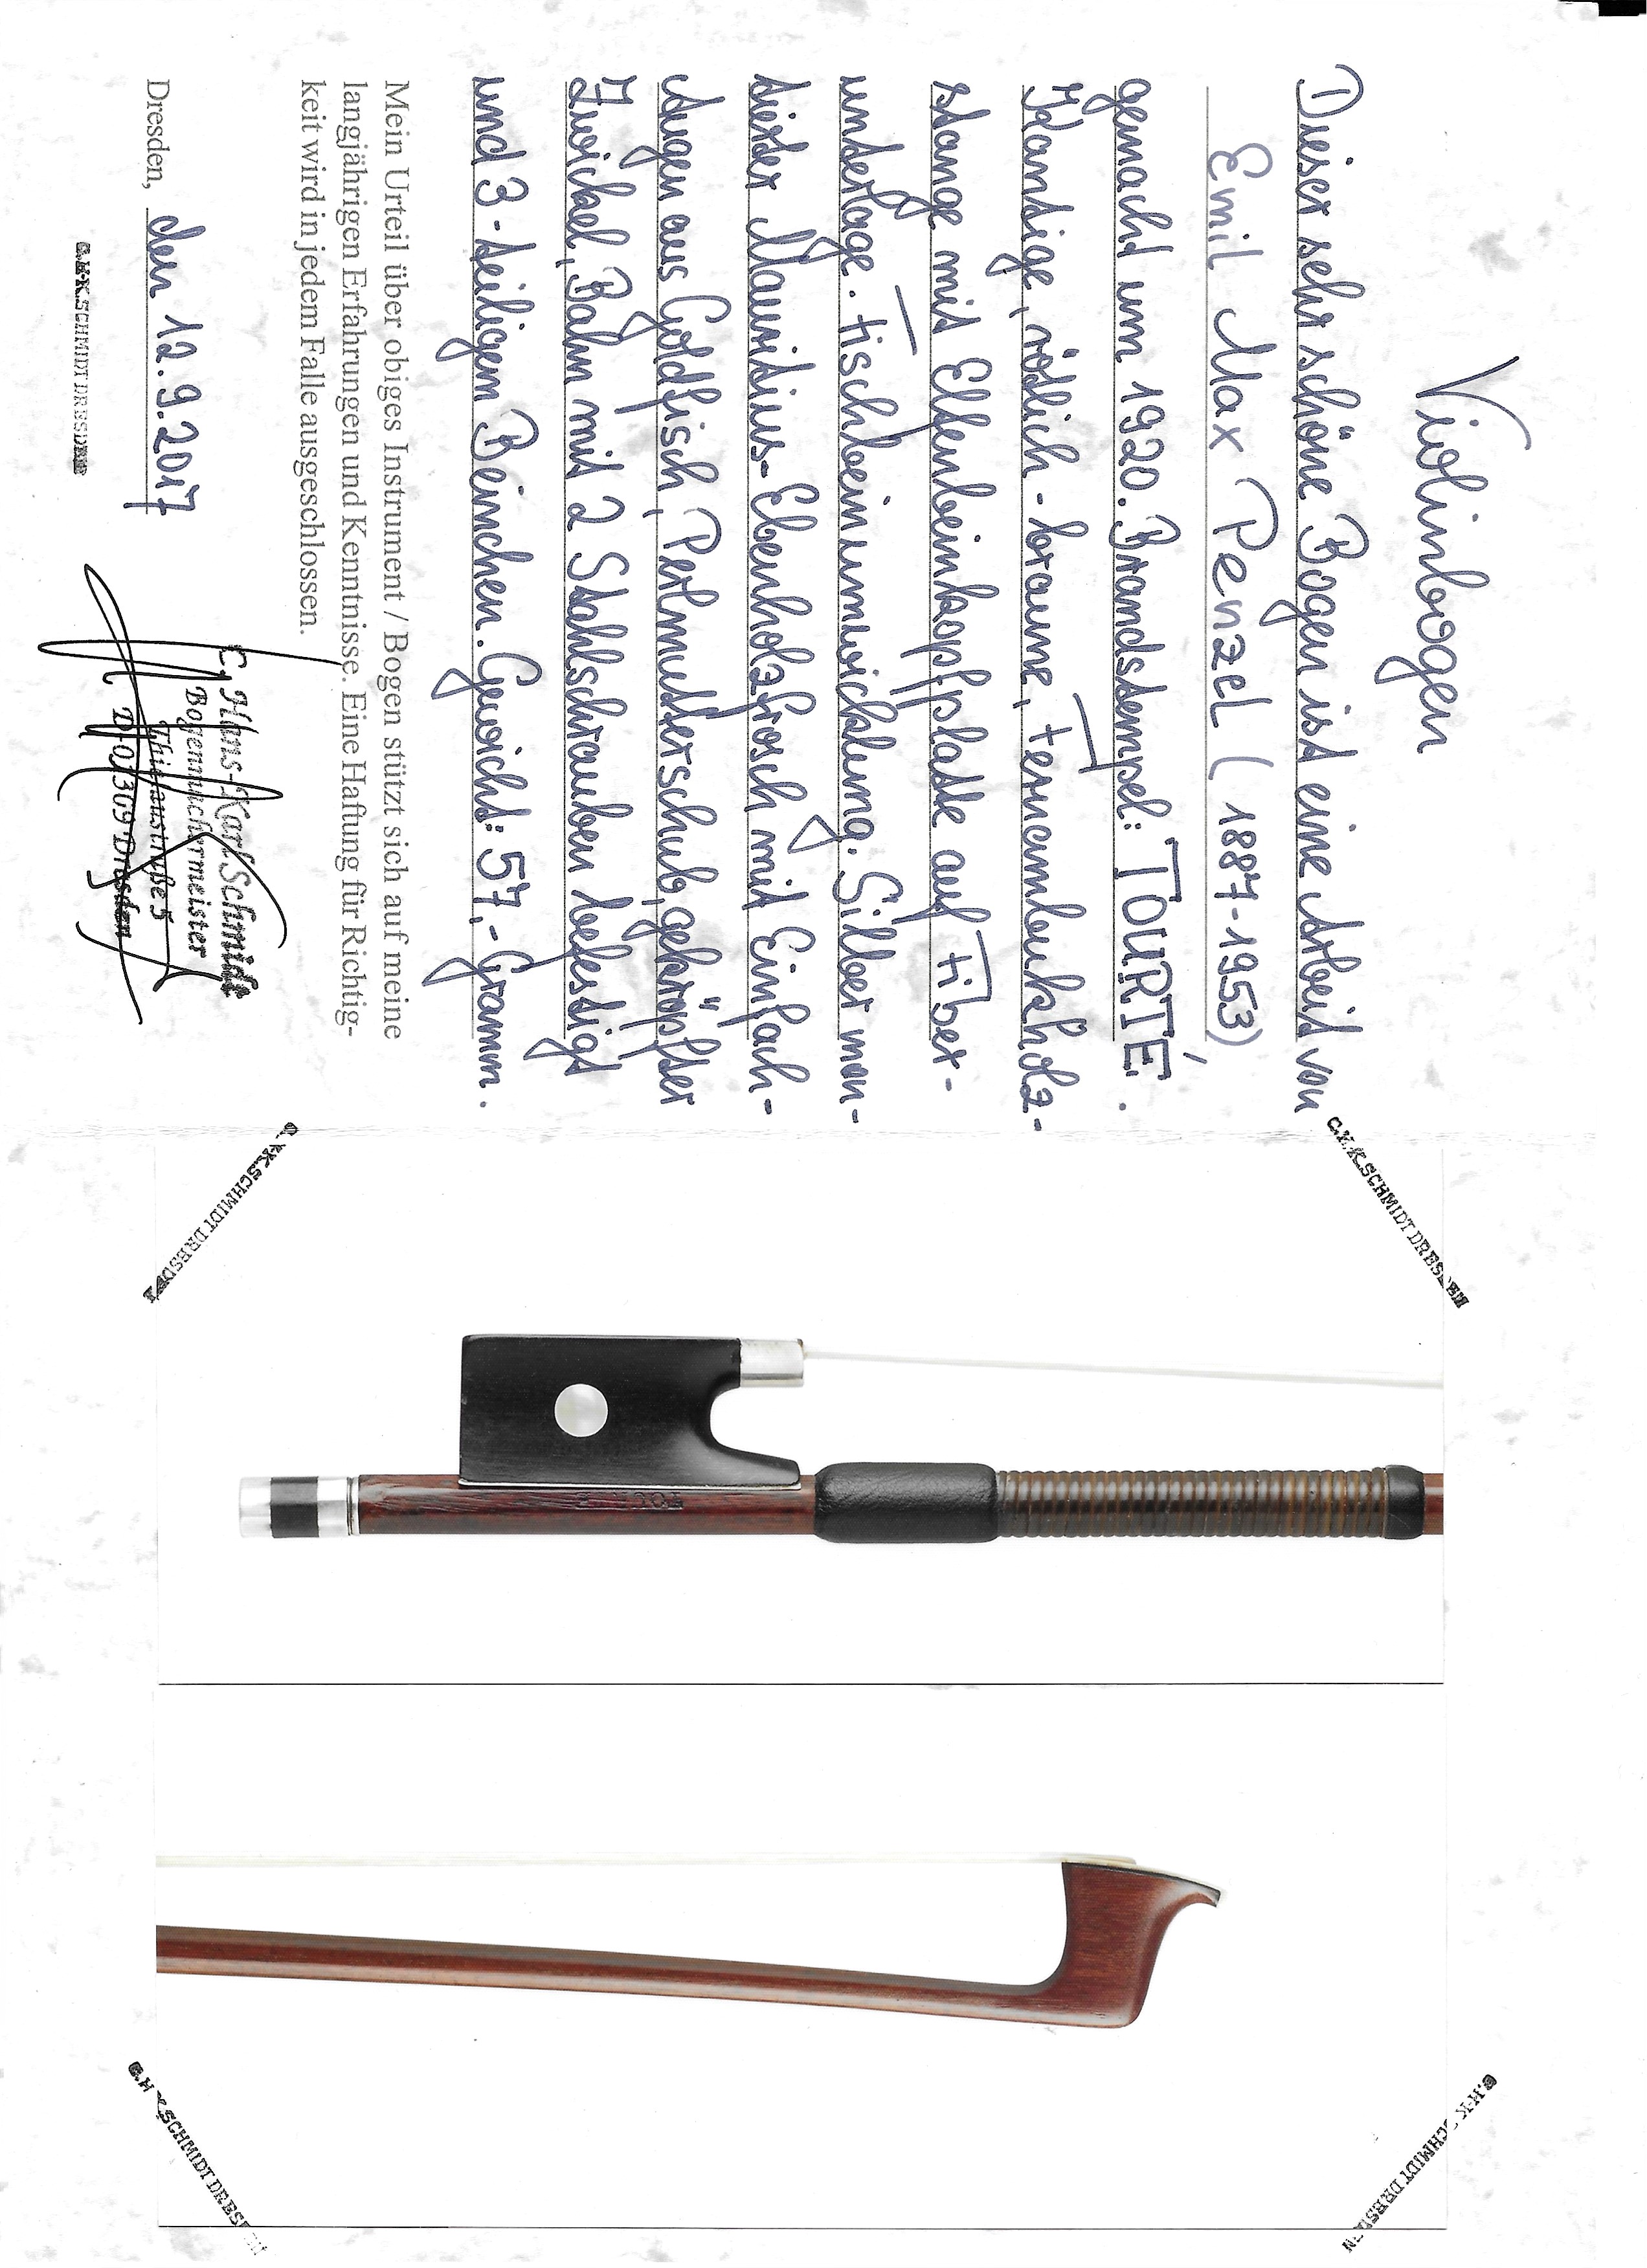 Violinbogen
Dieser sehr schöne Bogen ist eine Arbeit von
Emil Max Penzel (1887-1953)
gemacht um 1920. Brandstempel: TOURTÉ.
Kantige, rötlich-braune, Fernambukholz-
stange mit Elfenbeinkopfplatte auf Fiber-
unterlage. Fischbeinumwicklung. Silber mon-
tierter Mauritius-Ebenholzfrosch mit Einfach-
Augen aus Goldfisch, Perlmutterschub, gekröpfter
Zwickel, Bahn mit 2 Stahlschrauben befestigt
und 3-teiligem Beinchen. Gewicht: 57,- Gramm.
Mein Urteil über obiges Instrument / Bogen stützt sich auf meine
langjährigen Erfahrungen und Kenntnisse. Eine Haftung für Richtig-
keit wird in jedem Falle ausgeschlossen.
Dresden, den 12.9.2017
C. Hans-Karl Schmidt
Bogenmachermeister
D-01309 Dresden
C.H-K.SCHMIDT DRESDEN
C.H-K.SCHMIDT DRESDEN
C.H-K.SCHMIDT DRESDEN
C.H-K.SCHMIDT DRESDEN
C.H-K.SCHMIDT DRESDEN